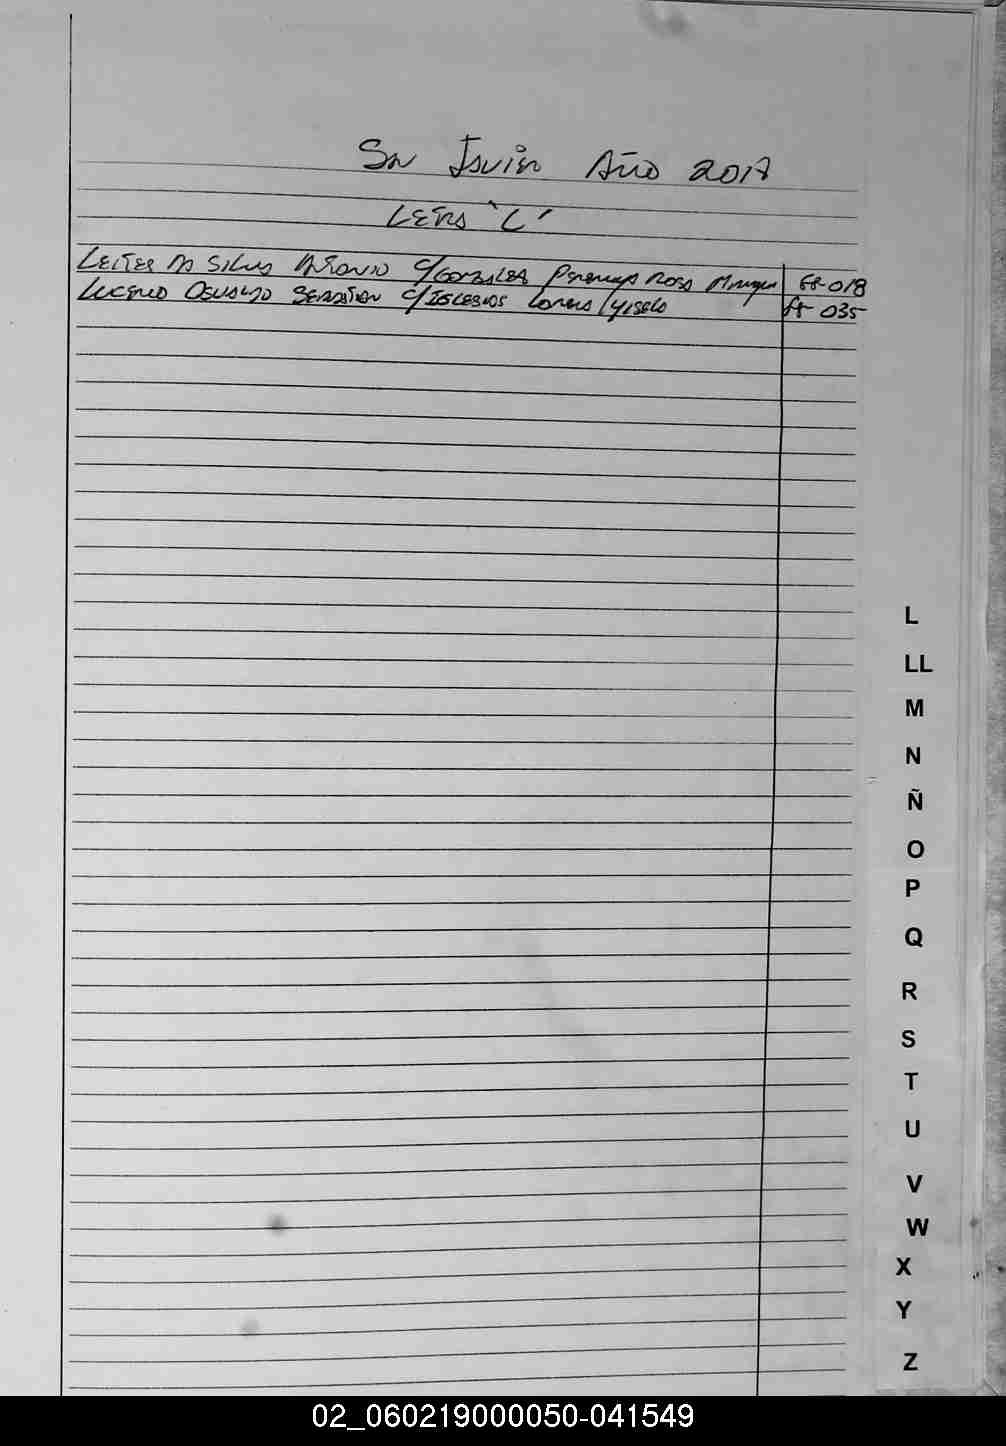 San Javier Año 2017
Letra "L"
Leites Da Silva Antonio c/Gonzalez Rosa 
ff-018
Lucero Osvaldo Sebastian c/Iglesias Lorena Yisela
ff-035
L
LL
M
N
Ñ
O
P
Q
R
S
T
U
V
W
X
Y
Z
02_060219000050-041549